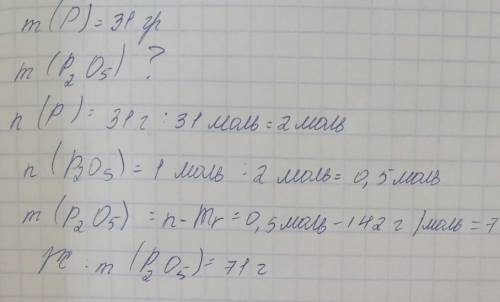 m (P) = 31 гр
m (P2O5) ?
n (P) = 31 г : 31 моль = 2 моль
n (P2O5) = 1 моль : 2 моль = 0,5 моль
m (P2O5) = n - Mr = 0,5 моль - 142 г / моль = 7
m (P2O5) = 71 г